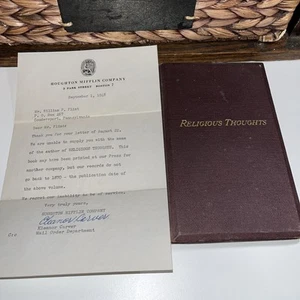 HOUGHTON MIFFLIN COMPANY
2 PARK STREET · BOSTON 7
September 5, 1957
Mr. William F.
P. O. Box
Pennsylvania
Dear Mr.
Thank you for your letter of August 22.
We are unable to supply you with the name
of the author of RELIGIOUS THOUGHTS. The
book was from printed at our Press for
another company, but our records do not
go back to 1880 - the publication date of
the above volume.
We regret our inability to be of service.
Very truly yours,
HOUGHTON MIFFLIN COMPANY
Eleanor Carver
Eleanor Carver
Mail Order Department
RELIGIOUS THOUGHTS